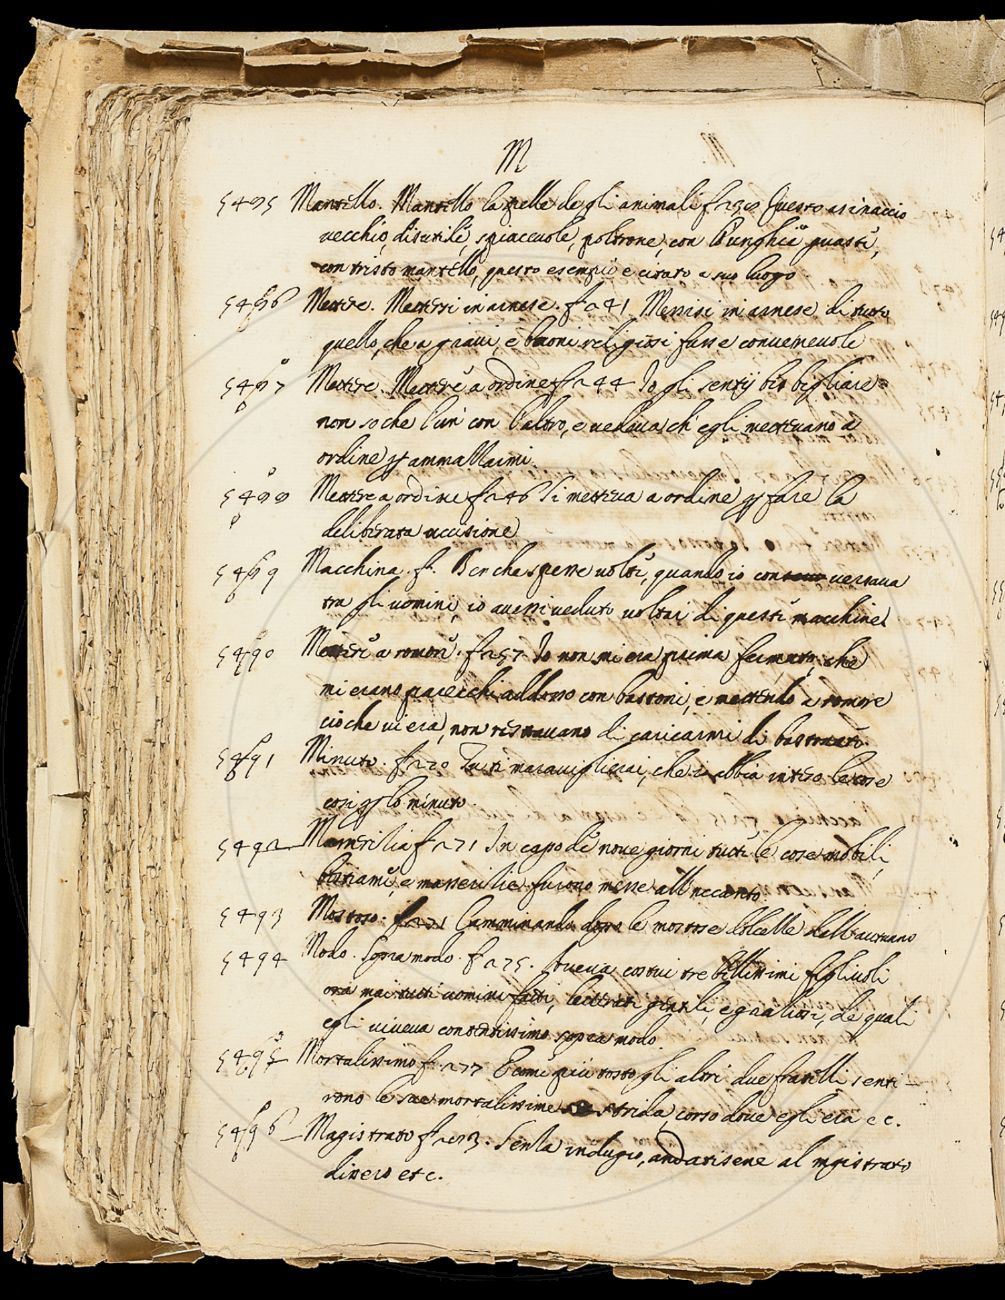 M
5485 Mantello. Mantello la pelle degli animali f 250 Questo asinaccio
vecchio, disutile, spiaceuole, poltrone, con l'unghie guaste,
con tristo mantello, questo esempio è citato a suo luogo
5486 Mettere. Mettersi in arnese. f 241 Messisi in arnese di tutto
quello, che a graui, e buoni religiosi fusse conueneuole
5487 Mettere. Mettere a ordine f 244 Io gli sentij bisbigliare
non so che l'un con l'altro, e vedeua ch'egli metteuano a
ordine per ammazzarmi.
5488 Mettere a ordine f 246 Si metteua a ordine per fare la
deliberata uccisione
5489 Macchina. f. Benche spesse uolte, quando io conuersaua
tra gli uomini, io auessi ueduto uoltar di queste macchine
5490 Mettere a romore. f 257 Io non mi era prima fermato, che
mi erano parecchi addosso con bastoni, e mettendo a romore
ciò che ui era, non restauano di caricarmi di bastonate.
5491 Minuto. f 270 Tu ti marauiglierai, che abbia inteso le cose
così per lo minuto.
5492 Masserizia f 271 In capo de noue giorni tutte le cose mobili,
bestiame e masserizie furono messe all'incanto.
5493 Mostoso. f 271 Camminando dopo le mostose dell'Autunno
5494 Modo. Sopra modo. f 275. Aueua costui tre bellissimi figliuoli
ora mai tutti uomini fatti, letterati gentili, e graziosi, de quali
egli uiueua contentissimo sopra modo
5495 Mortalissimo f 277 E come più tosto gli altri due fratelli senti-
rono le sue mortalissime strida, corso doue egli era ec.
5496 Magistrato f 283. Senza indugio, andatisene al magistrato
dissero etc.